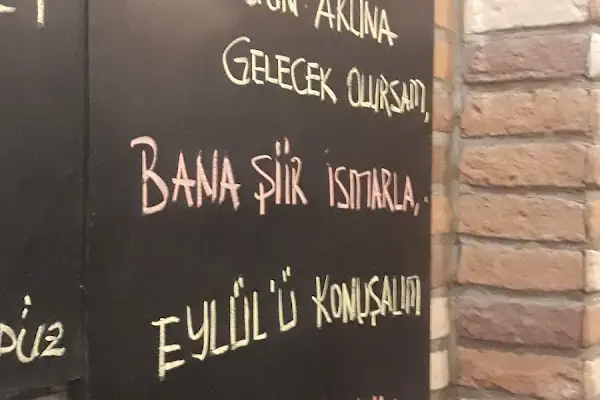 AKLINA
GELECEK OLURSAM,
BANA ŞİİR İSMARLA,.
EYLÜL'Ü KONUŞALIM